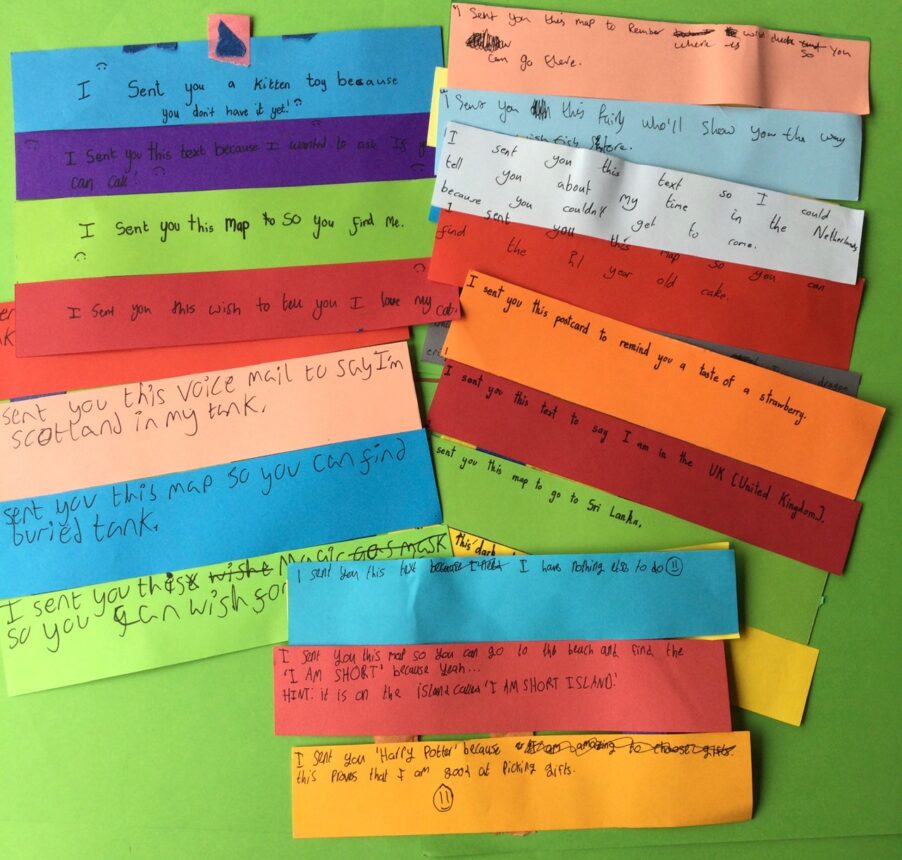 I Sent you a Kitten toy because
you don't have it yet!
I Sent you this text because I wanted to ask If
can call!
I Sent you this Map to SO you find Me.
I Sent you this wish to tell you I love my cat.
sent you this voice mail to say I'm
scotland in my tank.
sent you this map so you can find
buried tank.
I sent you this wishe Magic gas mask
so you can wish for
I Sent you this map to
where is so you
can go there.
I Sent you this fairy who'll show you the way
I sent you this text so I could
tell you about my time in the Netherlands
because you couldn't get to come.
I sent you this map so you can
find the year old cake.
I sent you this postcard to remind you a taste of a strawberry.
I sent you this text to say I am in the UK (United Kingdom).
sent you this map to go to Sri Lanka.
this dark
I sent you this text because I have nothing else to do
I sent you this map so you can go to the beach and find the
'I AM SHORT' because yeah...
HINT: it is on the island called 'I AM SHORT ISLAND.'
I sent you 'Harry Potter' because I am amazing to choose gifts.
this proves that I am good at picking gifts.